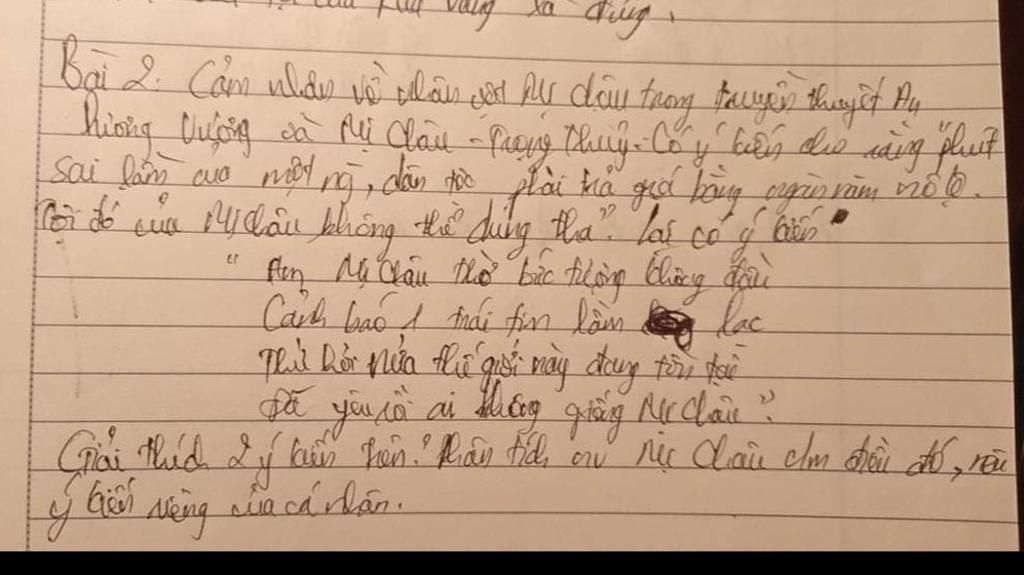 của Rùa Vàng xa đúng.
Bài 2: Cảm nhận về nhân vật Mị Châu trong truyền thuyết An
Dương Vương và Mị Châu - Trọng Thuỷ. Có ý kiến cho rằng "phút
sai lầm của một ng, dân tộc phải trả giá bằng ngàn năm nô lệ.
Tội đó của Mị Châu không thể dung tha". Lại có ý kiến
" Am Mị Châu thờ bức tượng không đầu
Cảnh báo 1 trái tim lầm lạc
Thử hỏi nửa thế giới này đang tồn tại
Đã yêu rồi ai không giống Mị Châu".
Giải thích 2 ý kiến trên. Phân tích nv Mị Châu c/m điều đó, nêu
ý kiến riêng của cá nhân.